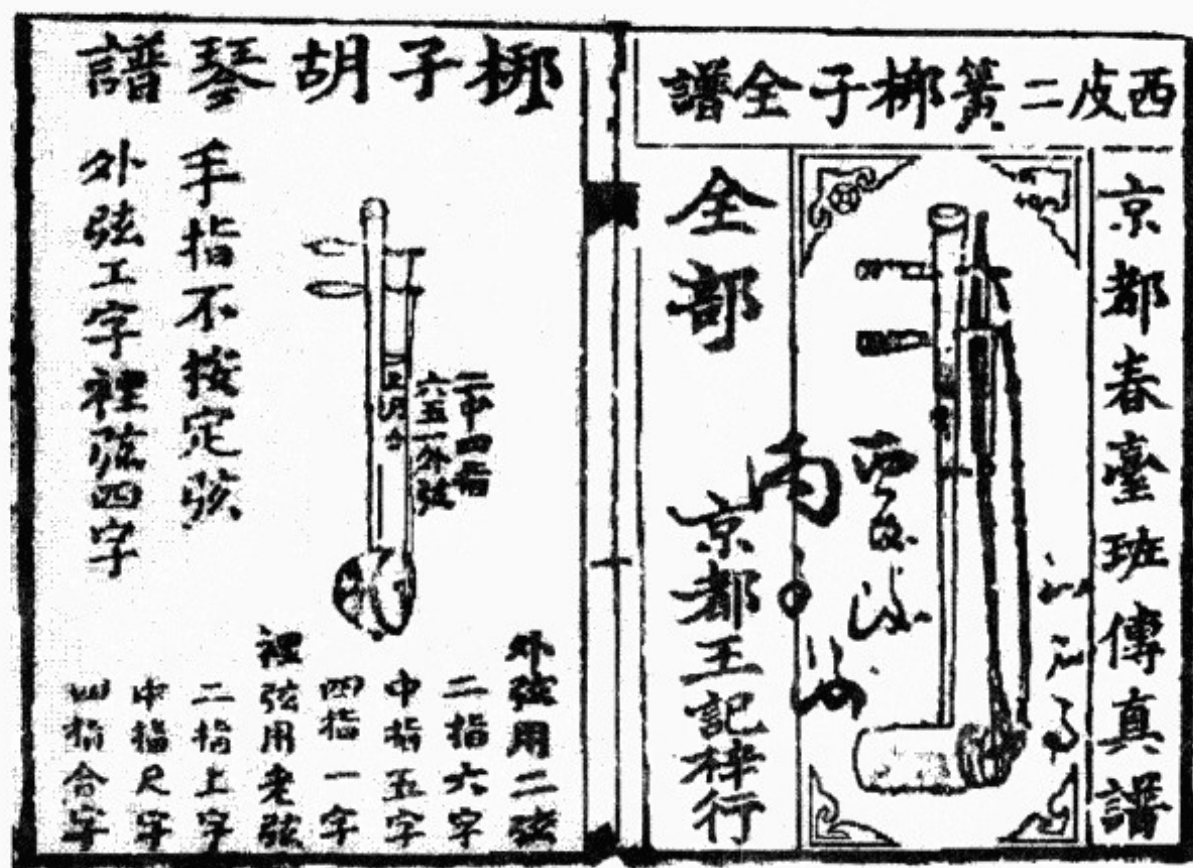 西皮二簧梆子全譜
京都春臺班傳真譜
全部
京都王記梓行
梆子胡琴譜
手指不按定弦
外弦工字裡弦四字
二中四指
六五一外弦
上尺合
外弦用二弦
二指六字
中指五字
四指一字
裡弦用老弦
二指上字
中指尺字
四指合字